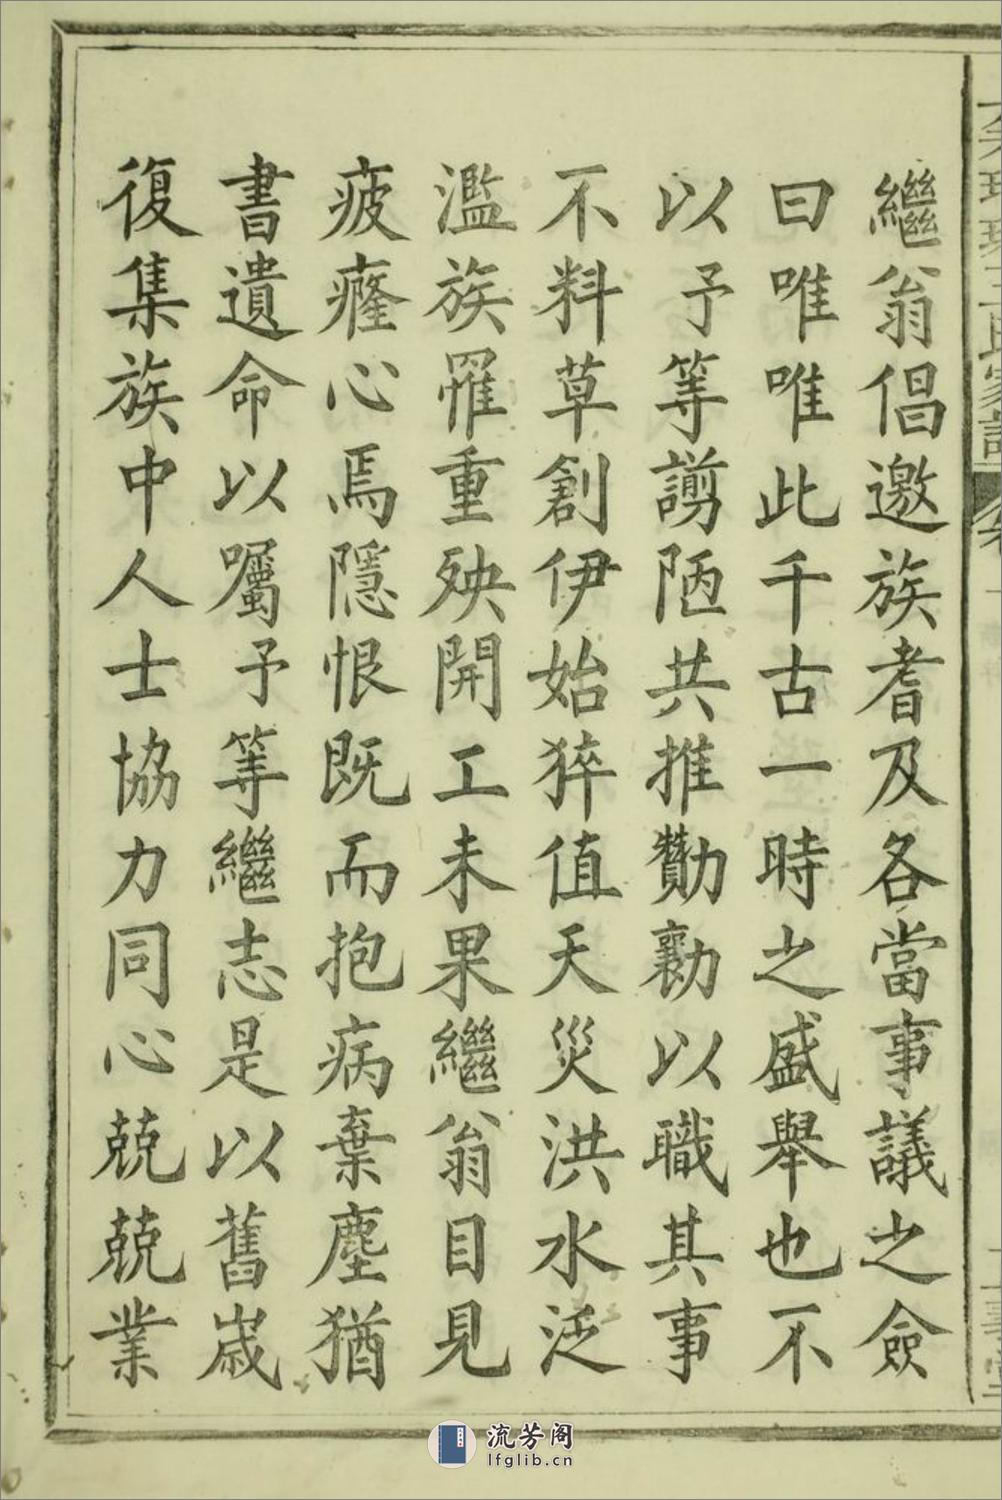 繼翁倡邀族耆及各當事議之僉
曰唯唯此千古一時之盛舉也不
以予等謭陋共推勷勷以職其事
不料草創伊始猝值天災洪水泛
濫族罹重殃開工未果繼翁目見
疲癃心焉隱恨既而抱病棄塵猶
書遺命以囑予等繼志是以舊歲
復集族中人士協力同心兢兢業
流芳阁
lfglib.cn